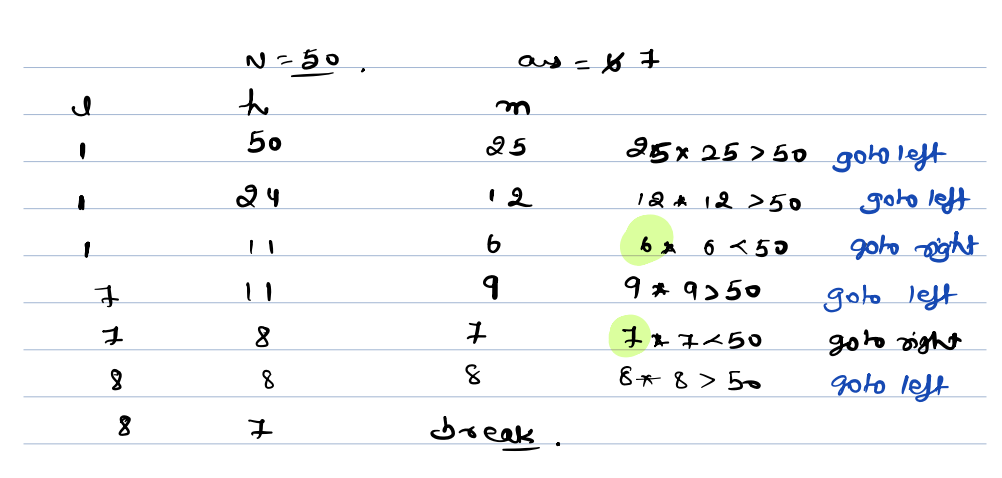 N = 50 . ans = 6 7
l h m
1 50 25 25 * 25 > 50 goto left
1 24 12 12 * 12 > 50 goto left
1 11 6 6 * 6 < 50 goto right
7 11 9 9 * 9 > 50 goto left
7 8 7 7 * 7 < 50 goto right
8 8 8 8 * 8 > 50 goto left
8 7 break .